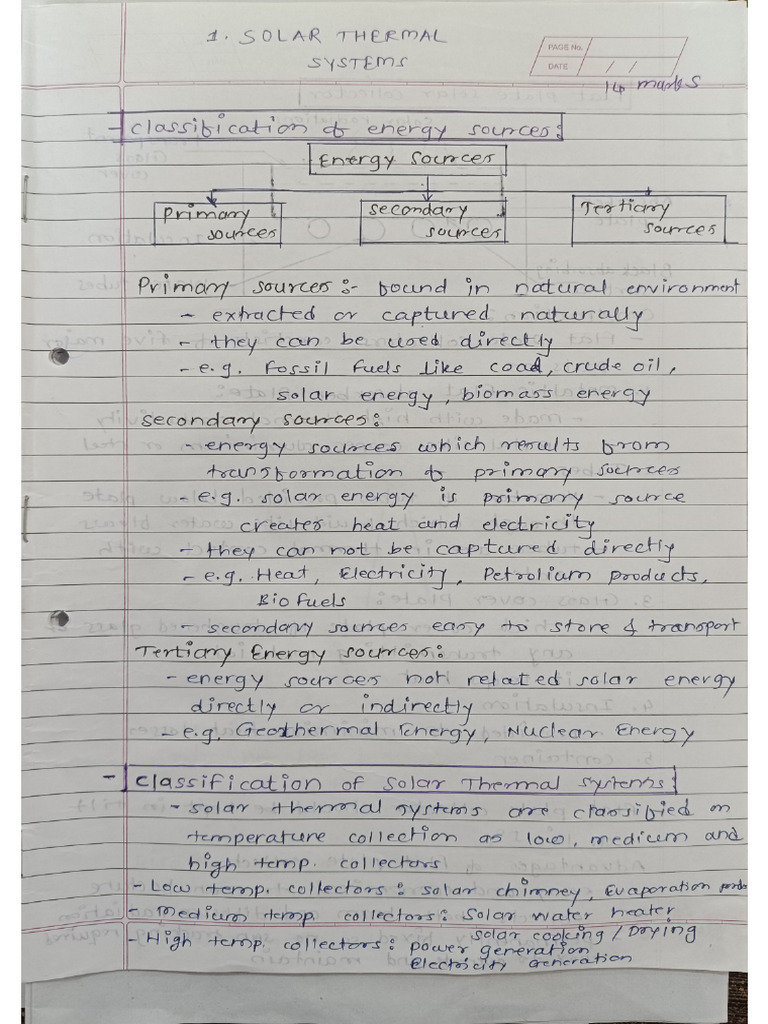 1. SOLAR THERMAL
SYSTEMS
PAGE No.
DATE / /
14 marks
- Classification of energy sources:
Energy Sources
Primary sources
Secondary sources
Tertiary sources
Primary sources :- found in natural environment
- extracted or captured naturally
- they can be used directly
- e.g. Fossil Fuels like coal, crude oil,
solar energy, biomass energy
Secondary sources:
- energy sources which results from
transformation of primary sources
- e.g. solar energy is primary source
creates heat and electricity
- they can not be captured directly
- e.g. Heat, Electricity, Petrolium products,
Bio Fuels
- secondary sources easy to store & transport
Tertiary Energy sources:
- energy sources not related solar energy
directly or indirectly
- e.g. Geothermal Energy, Nuclear Energy
- Classification of Solar Thermal Systems:
- Solar thermal systems are classified on
temperature collection as low, medium and
high temp. collectors
- Low temp. collectors : solar chimney, Evaporation
- Medium temp collectors: Solar water heater
solar cooking / Drying
- High temp. collectors: power generation
Electricity Generation